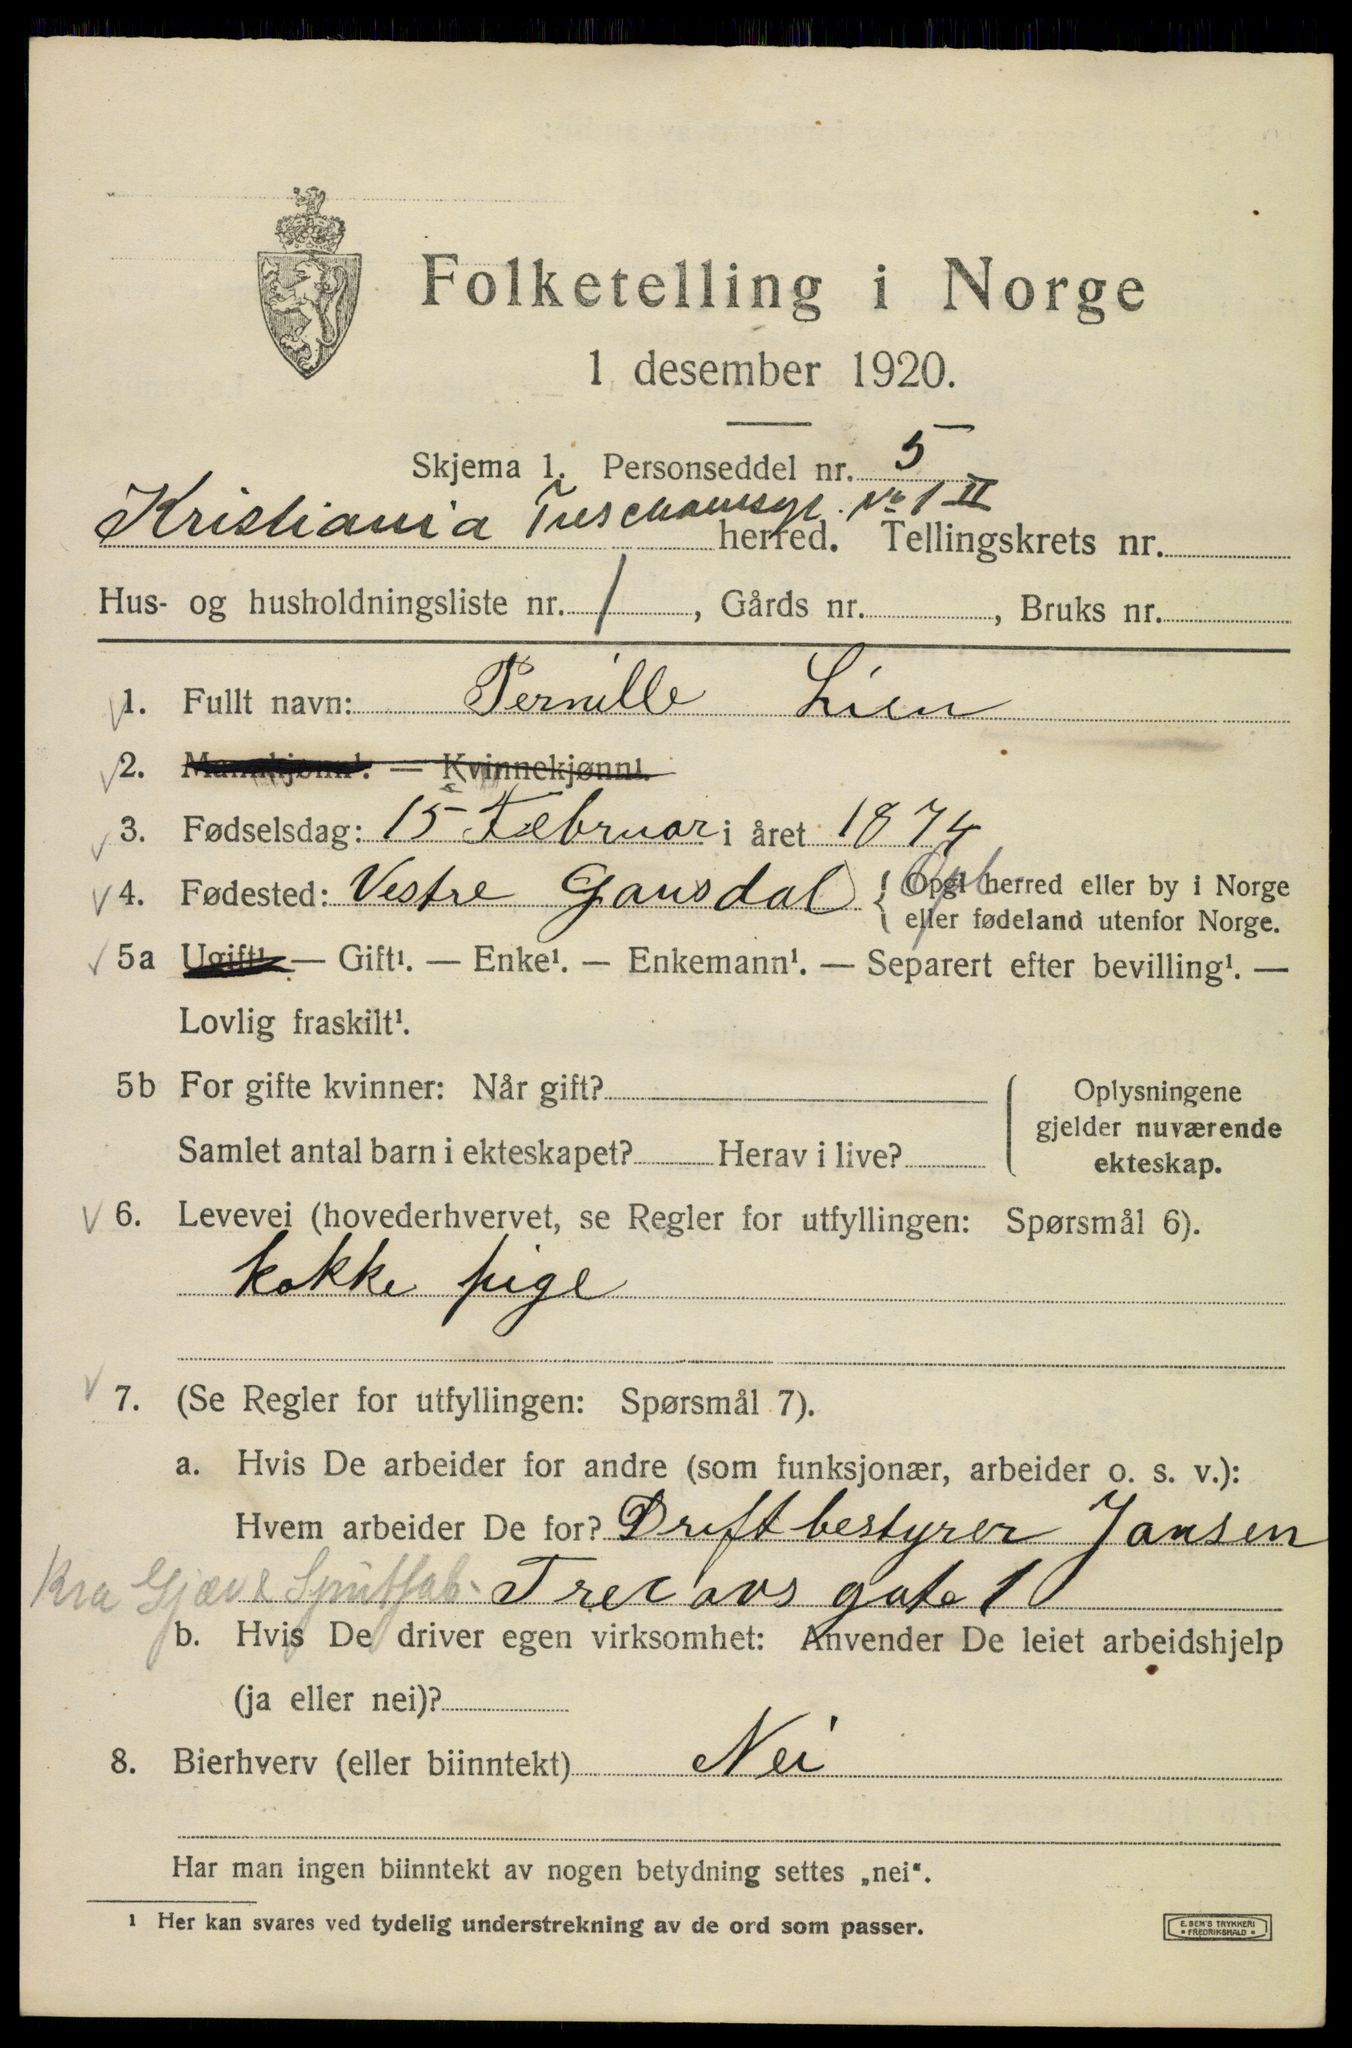 Folketelling i Norge
1 desember 1920.
Skjema 1. Personseddel nr. 5
Kristiania No 1 II
herred. Tellingskrets nr.
Hus- og husholdningsliste nr. 1, Gårds nr. , Bruks nr.
1. Fullt navn: Pernille Lien
2. Mannkjønn¹. — Kvinnekjønn¹.
3. Fødselsdag: 15 Februar i året 1874
4. Fødested: Vestre Gausdal { Opgi herred eller by i Norge
eller fødeland utenfor Norge.
5a Ugift¹. — Gift¹. — Enke¹. — Enkemann¹. — Separert efter bevilling¹. —
Lovlig fraskilt¹.
5b For gifte kvinner: Når gift? Oplysningene
gjelder nuværende
Samlet antal barn i ekteskapet? Herav i live? ekteskap.
6. Levevei (hovederhvervet, se Regler for utfyllingen: Spørsmål 6).
kokke pige
7. (Se Regler for utfyllingen: Spørsmål 7).
a. Hvis De arbeider for andre (som funksjonær, arbeider o. s. v.):
Hvem arbeider De for? Driftbestyrer Jansen
Kra Gjær & Spritfab. gate 1
b. Hvis De driver egen virksomhet: Anvender De leiet arbeidshjelp
(ja eller nei)?
8. Bierhverv (eller biinntekt) Nei
Har man ingen biinntekt av nogen betydning settes „nei".
¹ Her kan svares ved tydelig understrekning av de ord som passer.
E. SEM'S TRYKKERI
• FREDRIKSHALD •